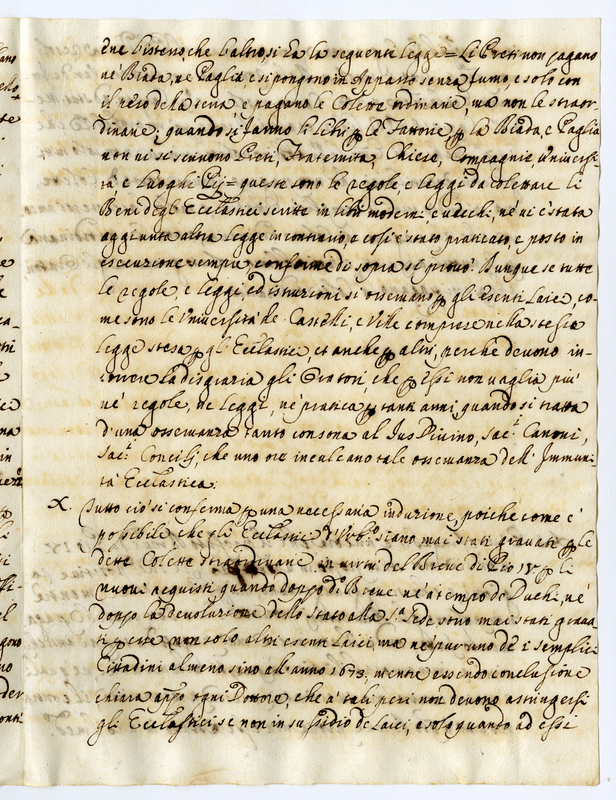 che bisteno, che baltrosi Ea la seguenti legge = Li Preti non pagano
nè Biada, nè Paglia, e si pongono in Appasso senza fumo, e solo con
il rezo della serva e pagano le Colette ordinarie, ma non le straor
dinarie; quando si fanno li libri p le Tattorie, p la Biada, e Paglia
non vi si scrivono Preti, Fraternita, Chiese, Compagnie, Universi-
tà, e Luoghi Pij = queste sono le regole, e leggi da colettare li
Beni degl Ecclastici scritte in libri moderni, e vecchi, nè vi è stata
aggiunta altra legge in contrario, e così è stato praticato, e posto in
esecuzione sempre, conforme di sopra si provò. Dunque se tutte
le regole, e leggi ed istruzioni si osservano p gli Esenti Laici, co-
me sono le Università de Castelli, e Ville comprese nella stessa
legge stesa p gl Ecclastici, et anche p altri, perche devono in-
correre la disgrazia gli Oratori che p Essi non vaglia più
nè regole, nè leggi, nè pratica p tanti anni, quando si tratta
d'una osservanza tanto consona al Jus Divino, Sac.ⁱ Canoni,
Sac.ⁱ Concilj, che uno ore inculcano tale osservanza dell' Immuni
tà Ecclastica.
X. Tutto ciò si conferma p una necessaria induzione, poiche come è
possibile che gli Ecclastici siano mai stati gravati p le
dette Colette straordinarie in virtù del Breve di Pio IV p li
nuovi acquisti quando doppo d.º Breve nè a tempo de Duchi, nè
doppo la devoluzione dello stato alla S.ª Sede sono mai stati grava
ti p esse non solo altri esenti Laici, ma nè pur uno de i semplici
Cittadini almeno sino all' anno 1673, mentre essendo conclusione
chiara appo ogni Dottore, che a' tali pesi non devono astringersi
gli Ecclastici se non in sussidio de Laici, e solo quando ad essi